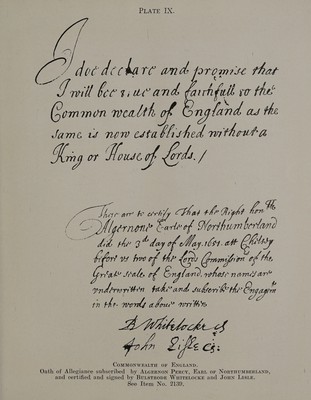 PLATE IX.
I doe declare and promise that
I will bee true and faithfull to the
Common wealth of England as the
same is now established without a
King or House of Lords. /
These are to certify That the Right hon
Algernone Earle of Northumberland
did the 3rd day of May. 1651. att Chelsey
before us two of the Lords Commission of the
Great seale of England, whose names are
underwritten take and subscribe the Engagem
in the words above written
B Whitelocke
John Lisle
COMMONWEALTH OF ENGLAND.
Oath of Allegiance subscribed by ALGERNON PERCY, EARL OF NORTHUMBERLAND,
and certified and signed by BULSTRODE WHITELOCKE and JOHN LISLE.
See Item No. 2130.